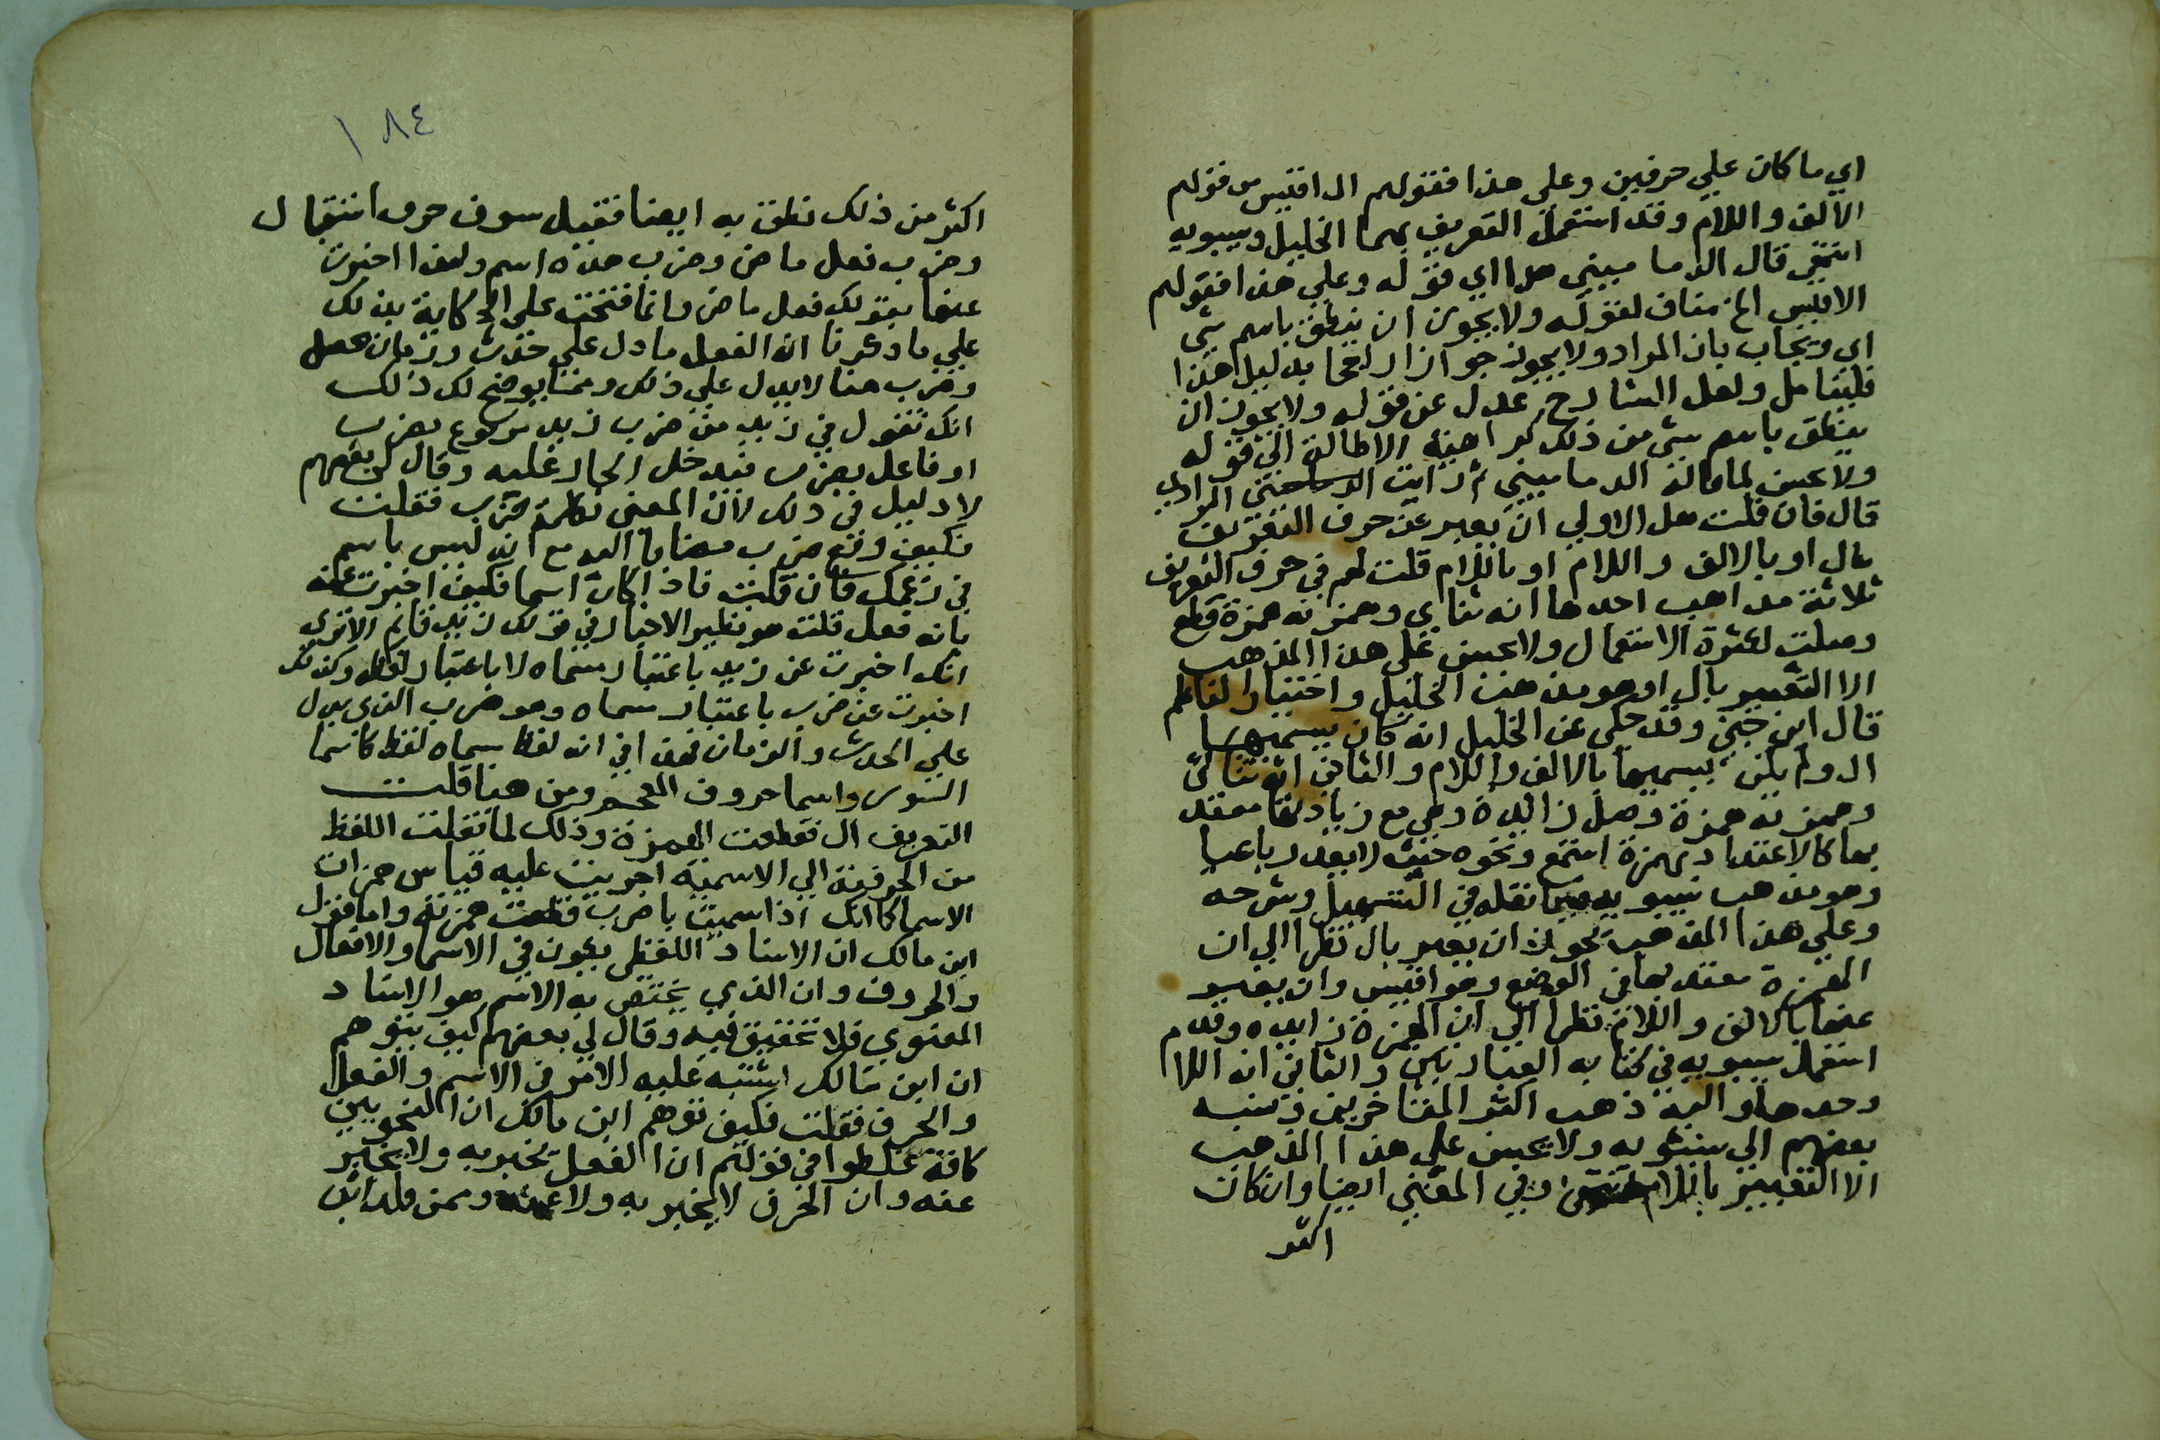 اي ما كان علي حرفين وعلي هذا فقولهم ال اقيس من قولهم
الالف واللام وقد استعمل التعريف بهما الخليل وسيبويه
انتهي قال الدماميني هذا اي قوله وعلي هذا فقولهم
الاقيس الخ مناف لقوله ولا يجوز ان ينطق باسم شي
اي ويجاب بان المراد ولا يجوز جوازا راجحا بدليل هذا
فليتامل ولعل الشارح عدل عن قوله ولا يجوز ان
ينطق باسم شي من ذلك كراهية الاطالة الي قوله
ولا يحسن لما قاله الدماميني ثم رايت المرادي
قال فان قلت هل الاولي ان يعبر عن حرف التعريف
بال او بالالف واللام او باللام قلت لهم في حرف التعريف
ثلاثة مذاهب احدها انه ثنائي وهمزته همزة قطع
وصلت لكثرة الاستعمال ولا يحسن علي هذا المذهب
الا التعبير بال وهو مذهب الخليل واختيار الناظم
قال ابن جني وقد حكي عن الخليل انه كان يسميها
ال ولم يكن يسميها بالالف واللام والثاني انه ثنائي
وهمزته همزة وصل زائدة وهي مع زيادتها معتد
بها كالاعتداد بهمزة استمع ونحوه حيث لا يعد رباعيا
وهو مذهب سيبويه فيما نقله في التسهيل وشرحه
وعلي هذا المذهب يجوز ان يعبر بال نظرا الي ان
الهمزة معتد بها في الوضع وهو اقيس وان يعبر
عنها بالالف واللام نظرا الي ان الهمزة زايده وقد
استعمل سيبويه في كتابه العبارتين والثاني انه اللام
وحدها واليه ذهب اكثر المتاخرين ونسبه
بعضهم الي سيبويه ولا يحسن علي هذا المذهب
الا التعبير باللام انتهي وفي المغني ايضا وان كان
اكثر
١٨٤
اكثر من ذلك نطق به ايضا فقيل سوف حرف استقبال
وضرب فعل ماض وضرب هذه اسم ولهذا اخبرت
عنها بقولك فعل ماض وانما فتحت علي الحكاية يدلك
علي ما ذكرنا ان الفعل ما دل علي حدث وزمان محصل
وضرب هنا لا يدل علي ذلك ومما يوضح لك ذلك
انك تقول في زيد من ضرب زيد مرفوع بضرب
او فاعل بضرب فتدخل الجار عليه وقال لي بعضهم
لا دليل في ذلك لان المعني بكلمة ضرب فقلت
فكيف وقع ضرب مضافا اليه مع انه ليس باسم
في زعمك فان قلت فاذا كان اسما فكيف اخبرت عنه
بانه فعل قلت هو نظير الاخبار في قولك زيد قايم الا تري
انك اخبرت عن زيد باعتبار مسماه لا باعتبار لفظه وكذلك
اخبرت عن ضرب باعتبار مسماه وهو ضرب الذي يدل
علي الحدث والزمان فهذا في انه لفظ مسماه لفظ كاسما
السور واسما حروف المعجم ومن هنا قلت
التعريف ال فقطعت الهمزة وذلك لما نقلت اللفظ
من الحرفية الي الاسمية اجريت عليه قياس همزات
الاسما كما انك اذا سميت باضرب قطعت همزته واما قول
ابن مالك ان الاسناد اللفظي يكون في الاسما والافعال
والحروف وان الذي يختص به الاسم هو الاسناد
المعنوي فلا تحقيق فيه وقال لي بعضهم كيف يتوهم
ان ابن مالك اشتبه عليه الامر في الاسم والفعل
والحرف فقلت فكيف توهم ابن مالك ان النحويين
كافة غلطوا في قولهم ان الفعل يخبر به ولا يخبر
عنه وان الحرف لا يخبر به ولا عنه وممن قلد ابن